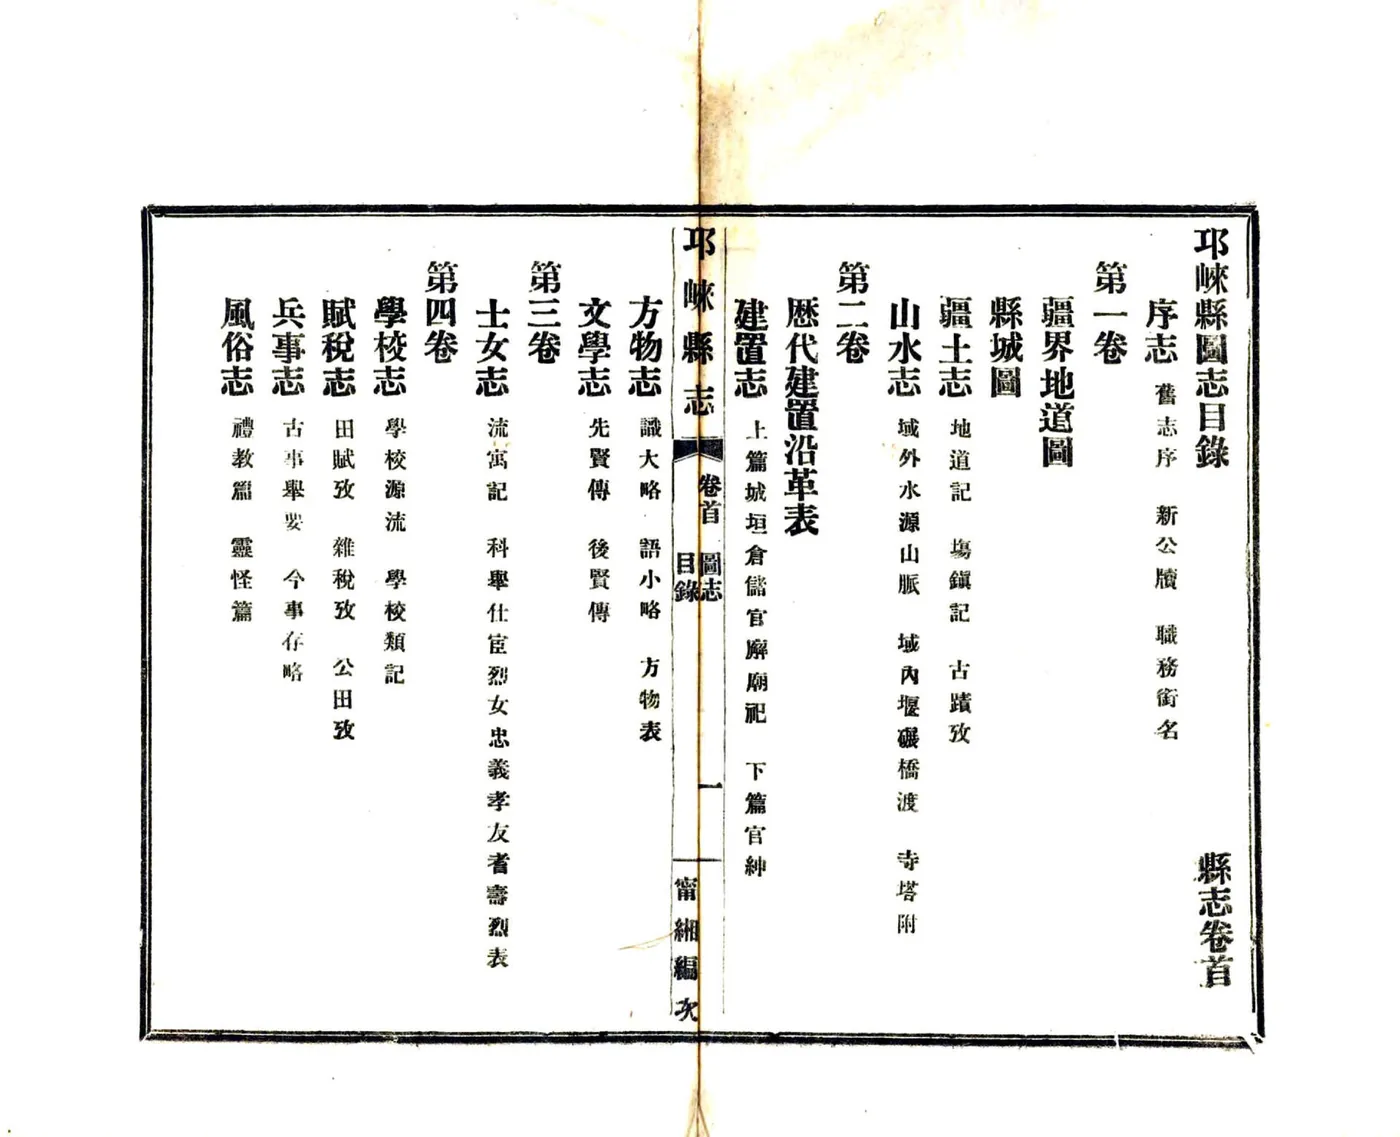 邛崍縣圖志目錄 縣志卷首
序志 舊志序 新公牘 職務銜名
第一卷
疆界地道圖
縣城圖
疆土志 地道記 塲鎭記 古蹟攷
山水志 域外水源山脈 域內堰碾橋渡 寺塔附
第二卷
歷代建置沿革表
建置志 上篇城垣倉儲官廨廟祀 下篇官紳
邛崍縣志
卷首 圖志
目錄
一
甯緗編次
方物志 識大略 語小略 方物表
文學志 先賢傳 後賢傳
第三卷
士女志 流寓記 科舉仕宦烈女忠義孝友耆壽烈表
第四卷
學校志 學校源流 學校類記
賦稅志 田賦攷 雜稅攷 公田攷
兵事志 古事舉要 今事存略
風俗志 禮教篇 靈怪篇